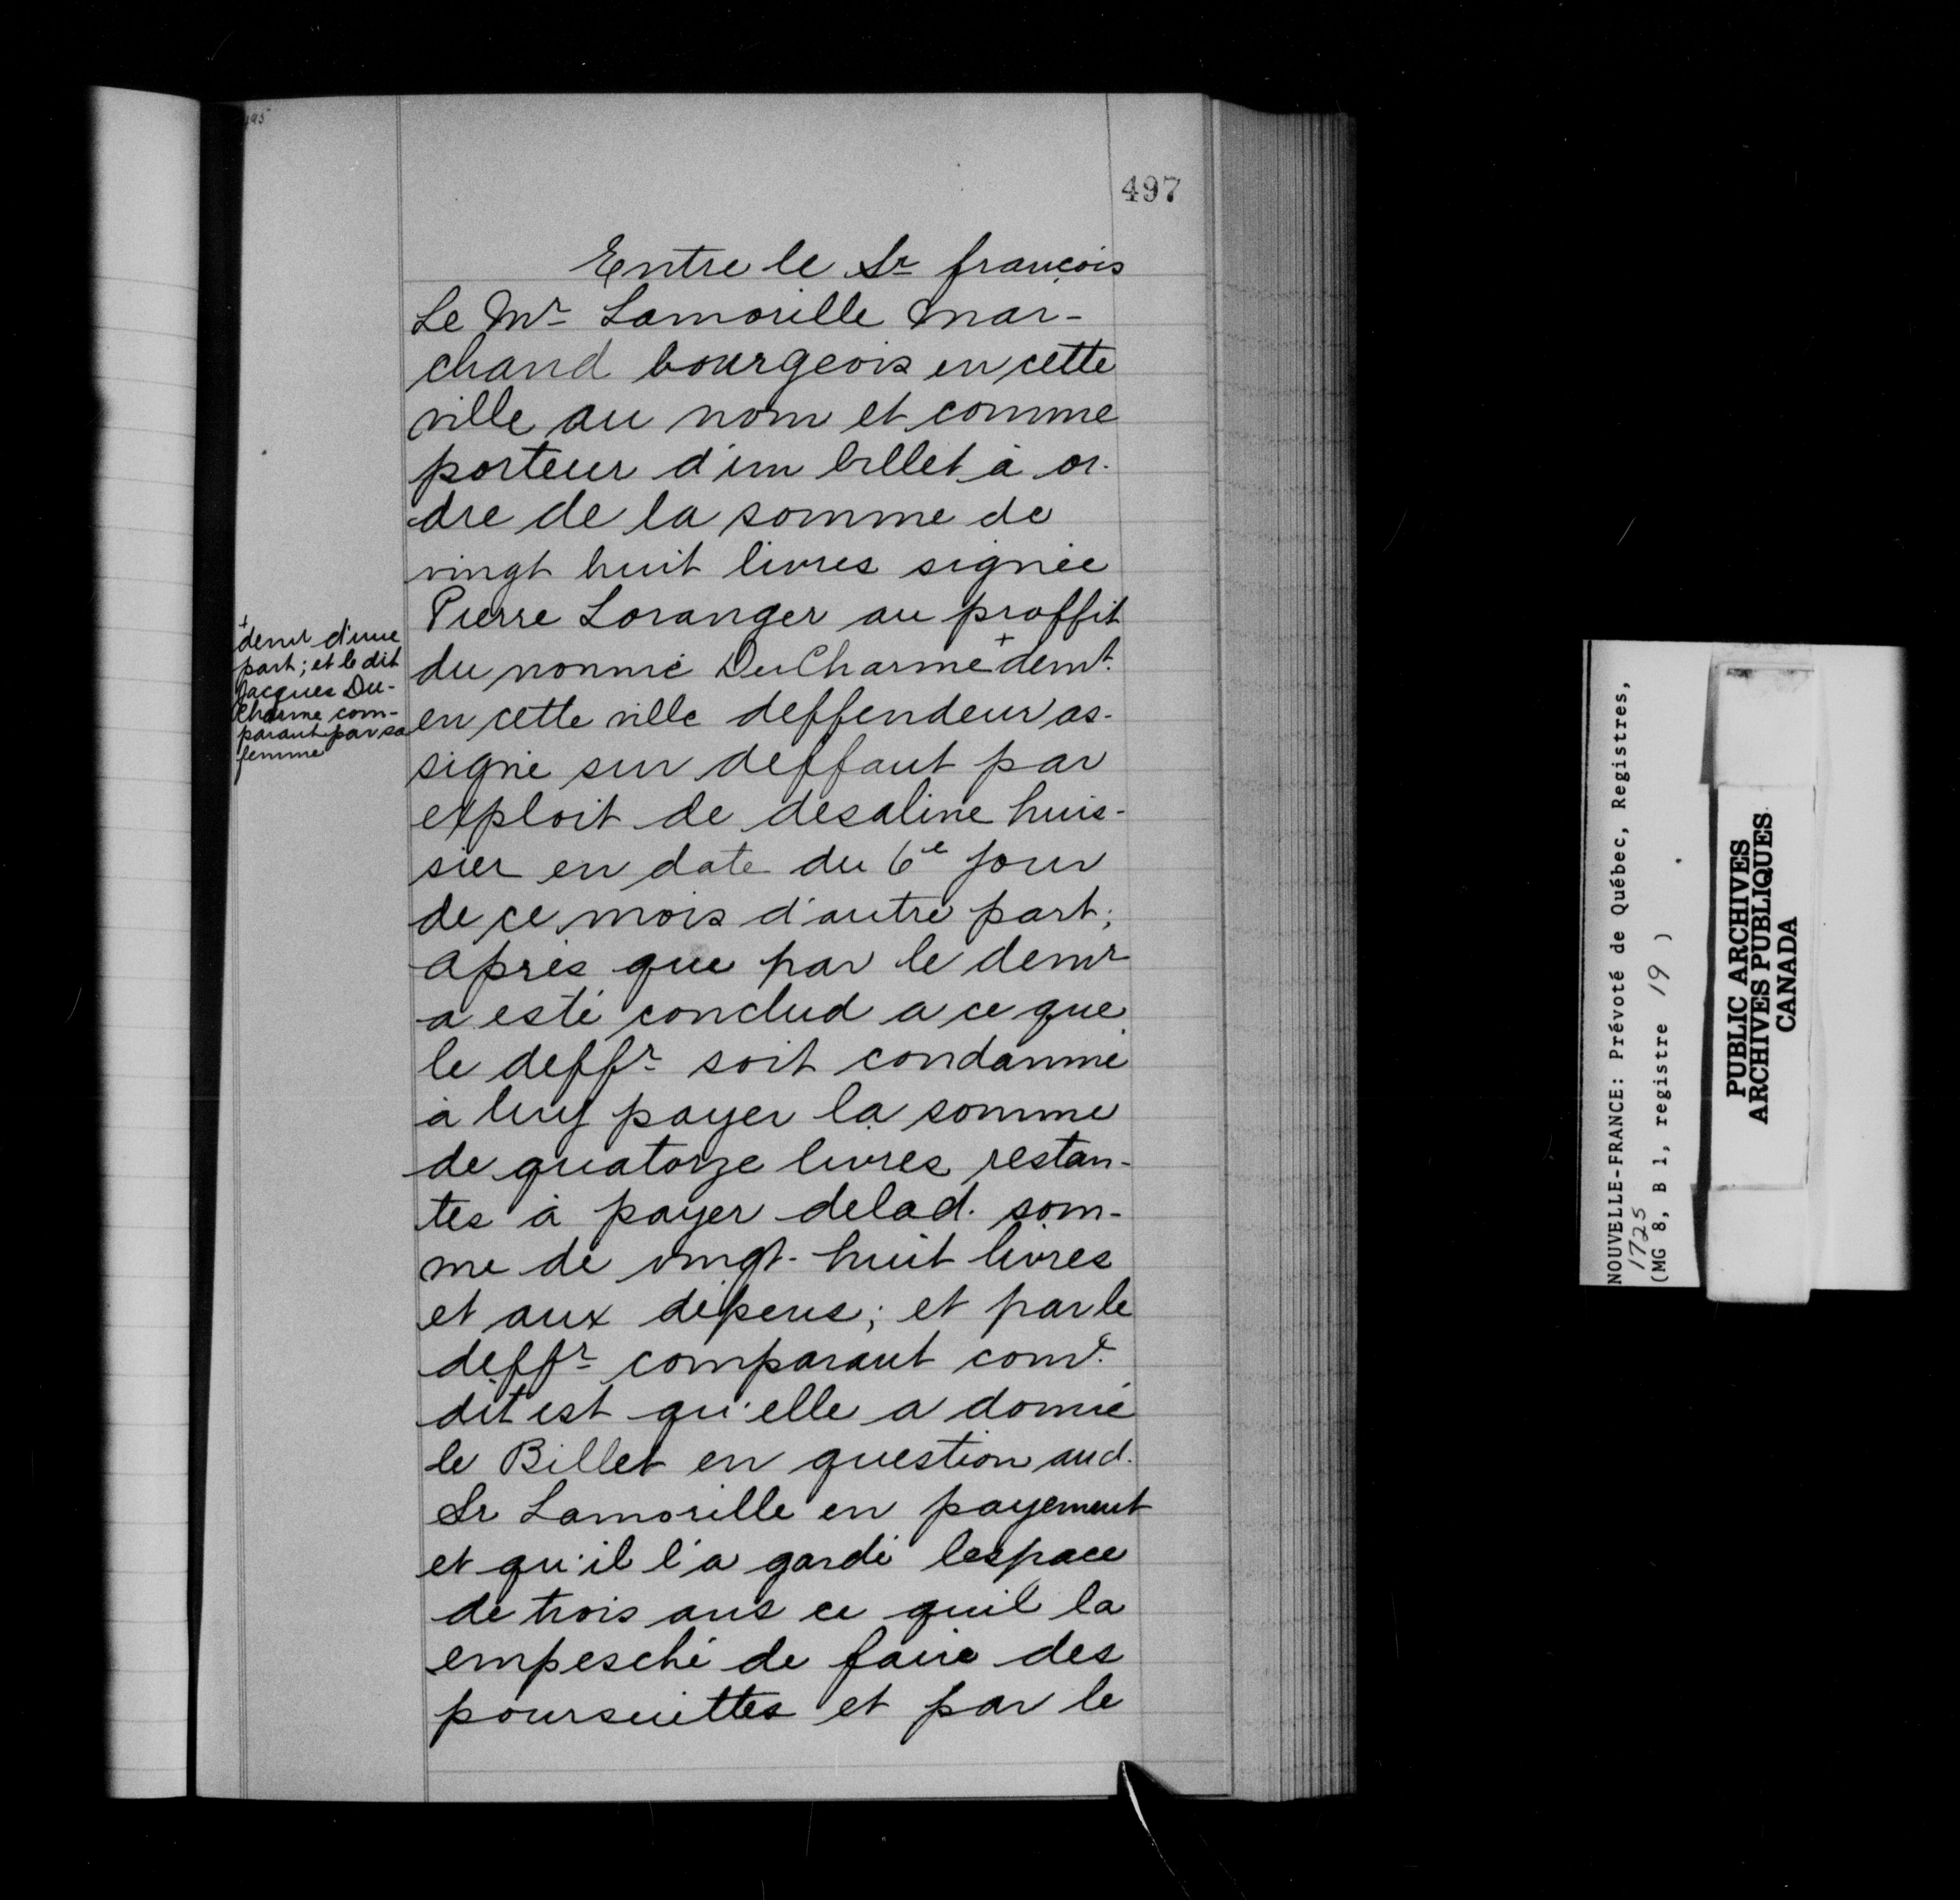 495
497
Entre le Sr françois
Le Mr Lamorille mar-
chand bourgeois en cette
ville au nom et comme
porteur d'un billet à or-
dre de la somme de
vingt huit livres signée
Pierre Loranger au proffit
du nommé DuCharme + demt.
en cette ville deffendeur as-
signé sur deffaut par
exploit de desaline huis-
sier en date du 6e jour
de ce mois d'autre part;
après que par le demr
a esté conclud a ce que
le deffr soit condamné
à luy payer la somme
de quatorze livres restan-
tes à payer delad. som-
me de vingt-huit livres
et aux dépens; et par le
deffr comparant come.
dit est qu'elle a donné
le Billet en question aud.
Sr Lamorille en payement
et qu'il l'a gardé lespace
de trois ans ce quil la
empesché de faire des
poursuittes et par le
+
demr d'une
part; et le dit
Jacques Du-
Charme com-
parant par sa
femme
NOUVELLE-FRANCE: Prévoté de Québec, Registres,
1725
(MG 8, B 1, registre 19 )
PUBLIC ARCHIVES
ARCHIVES PUBLIQUES
CANADA